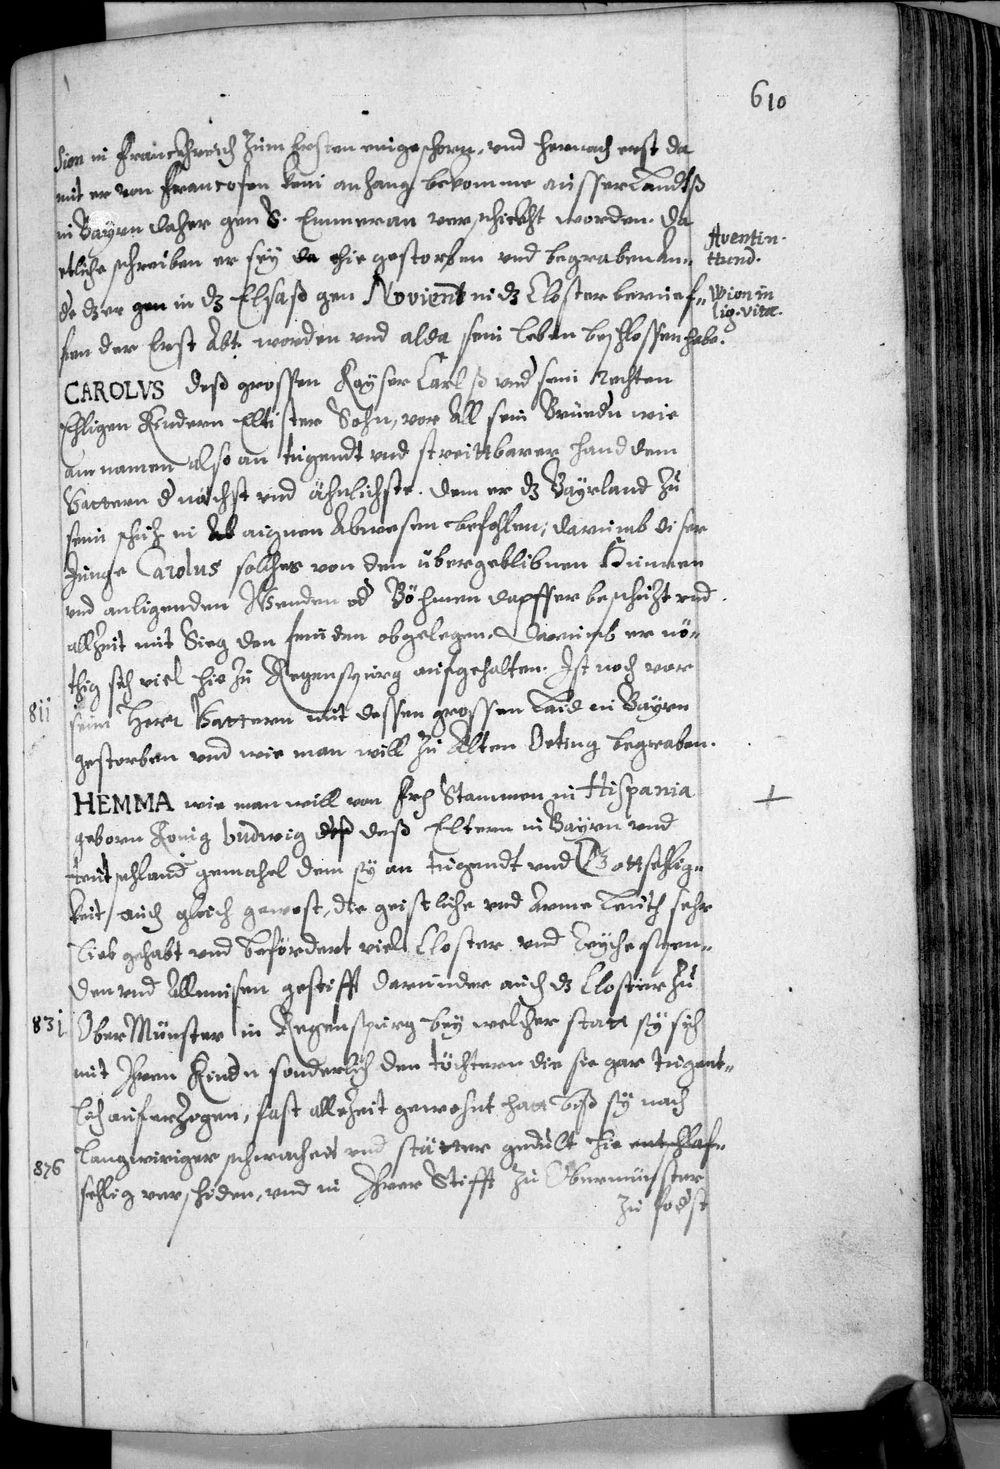 610
sion in Franckhreich zum Ersten eingeschorn, und hernach erst da
mit er von Francosen kein anhang bekomme ausser Landtß
in Bayrn daher gen S. Emmeran verschickht worden. Da
etliche schreiben er sey da hie gestorben und begraben An-
Aventin.
Hund.
de dz er gen in dz Elsaß gen Novient in dz Closter
Wion in
lig. vitæ.
der Erst Abt worden und alda sein leben beschlossen habe.
CAROLVS deß grossen Kayser Carls und sein rechten
Ehligen Kindern Eltister Sohn, vor All sein Brüedn wie
am namen also an tugendt und streittbarer hand dem
Vattern d nächst und ähnlichste. dem er dz Bayrland zu
sein schuz in aignen Abwesen befohlen, darumb diser
Junge Carolus solches von den übergeblibnen Hunnen
und anligenden Wenden od Böhmen dapffer beschüzt und
allzeit mit Sieg den feinden obgelegen. Darumb er nö-
thig sich viel hie zu Regenspurg aufgehalten. Ist noch vor
811
seim Herr Vattern mit dessen grossen Laid in Bayrn
gestorben und wie man will zu Alten Oeting begraben.
HEMMA wie man will von Stammen in Hispania
+
geborn Konig Ludwig deß Eltern in Bayrn und
teutschland gemahel dem sy an tugendt und Gottsehlig-
keit auch gleich gewest, die geistliche und Arme Leuth sehr
lieb gehabt und befördert viel Closter und
den und Allmuisen gestifft darunder auch dz Closter zu
831
Ober Münster in Regenspurg bey welcher statt sy sich
mit Ihren Kindn sonderlich den töchtern die sie gar tugent-
lich auferzogen, fast allezeit gewohnt hatt biß sy nach
langwiriger schwacheit und stätter gedult hie entschlaf-
876
sehlig verschiden, und in Ihrer Stifft zu Obermünster
zu